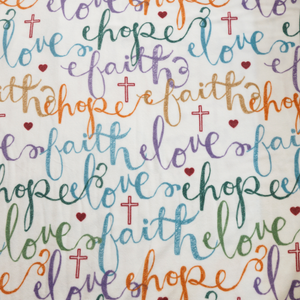 hope love
love faith
faith hope faith hope
faith love faith
love hope
love faith
love hope love
love